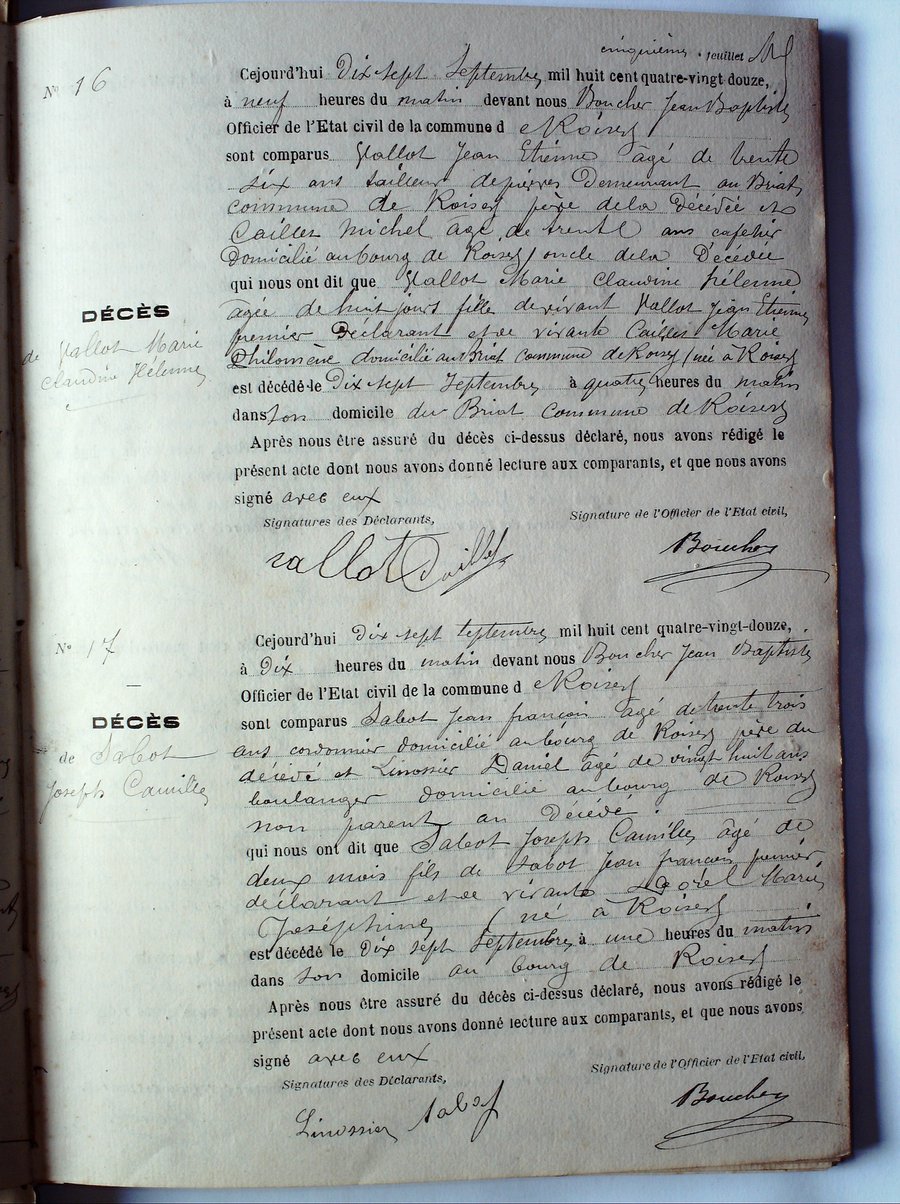 cinquième feuillet
N° 16
Cejourd'hui Dix sept Septembre mil huit cent quatre-vingt douze,
à neuf heures du matin devant nous Boucher Jean Baptiste
Officier de l'Etat civil de la commune d e Roisey
sont comparus Vallot Jean Etienne âgé de trente
six ans tailleur de pierres Demeurant au Briat
commune de Roisey père de la Décédée et
Caillet Michel âgé de trente ans cafetier
Domicilié au bourg de Roisey oncle de la Décédée
qui nous ont dit que Vallot Marie Claudine Hélenne
agée de huit jours fille de vivant Vallot Jean Etienne
premier Déclarant et de vivante Caillet Marie
Philomène domicilié au Briat commune de Roisey (née à Roisey
est décédé le Dix sept Septembre à quatre heures du matin
dans son domicile du Briat commune de Roisey
DÉCÈS
de Vallot Marie
Claudine Hélenne
Après nous être assuré du décès ci-dessus déclaré, nous avons rédigé le
présent acte dont nous avons donné lecture aux comparants, et que nous avons
signé avec eux
Signatures des Déclarants, Signature de l'Officier de l'Etat civil,
Vallot Caillet Boucher
N° 17
Cejourd'hui Dix sept Septembre mil huit cent quatre-vingt-douze,
à Dix heures du matin devant nous Boucher Jean Baptiste
Officier de l'Etat civil de la commune d e Roisey
sont comparus Sabot Jean françois âgé de trente trois
ans cordonnier domicilié au bourg de Roisey père du
décédé et Linossier Daniel âgé de vingt huit ans
boulanger domicilié au bourg de Roisey
non parent au Décédé
qui nous ont dit que Sabot Joseph Camille âgé de
deux mois fils de Sabot Jean françois premier
déclarant et de vivante Marie
Joséphine (né à Roisey
est décédé le Dix sept Septembre à une heures du matin
dans son domicile au bourg de Roisey
DÉCÈS
de Sabot
Joseph Camille
Après nous être assuré du décès ci-dessus déclaré, nous avons rédigé le
présent acte dont nous avons donné lecture aux comparants, et que nous avons
signé avec eux
Signatures des Déclarants, Signature de l'Officier de l'Etat civil,
Linossier Sabot Boucher